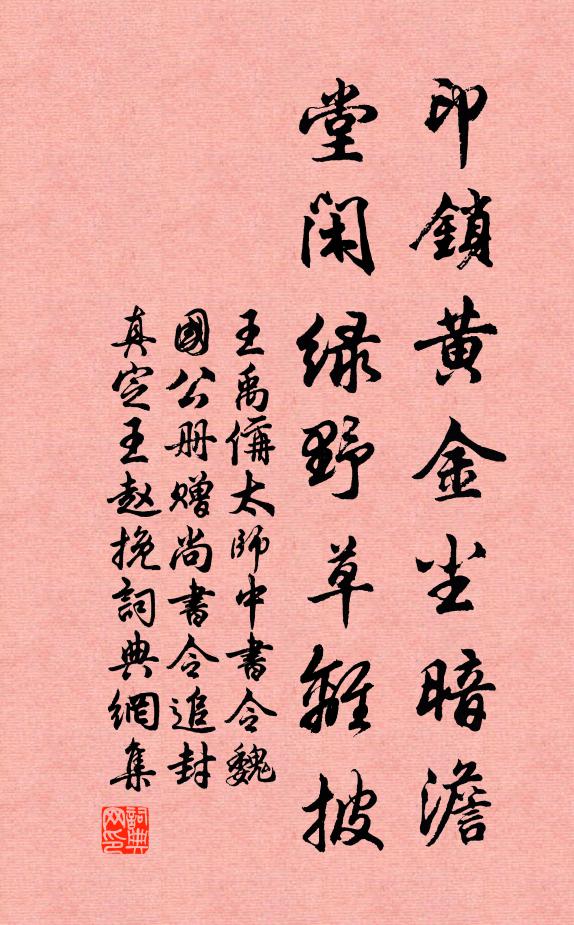 印鎖黄金尘暗澹
堂閑緑野草離披
王禹偁太师中書令魏
國公册赠尚書令追封
真定王赵挽詞典網集
詞典网印